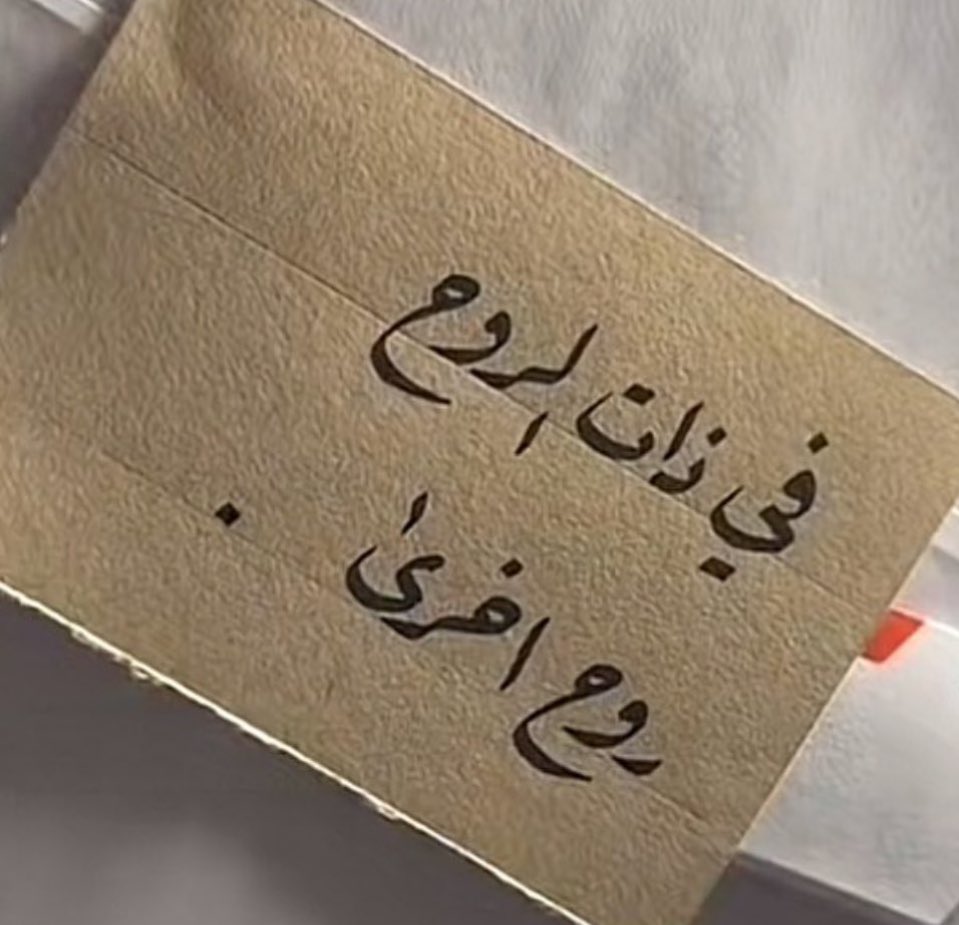 في ذات الروح
روح اخرىٰ .